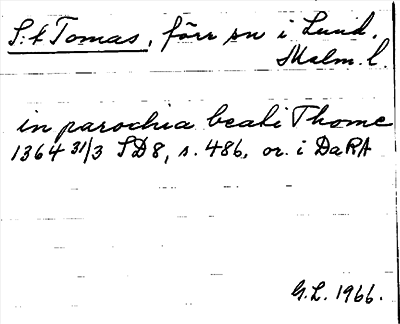 S:t Tomas, förr sn i Lund,
Malm. l.
in parochia beati Thome
1364 31/3 SD 8, s. 486, or. i DaRA
G.L. 1966.